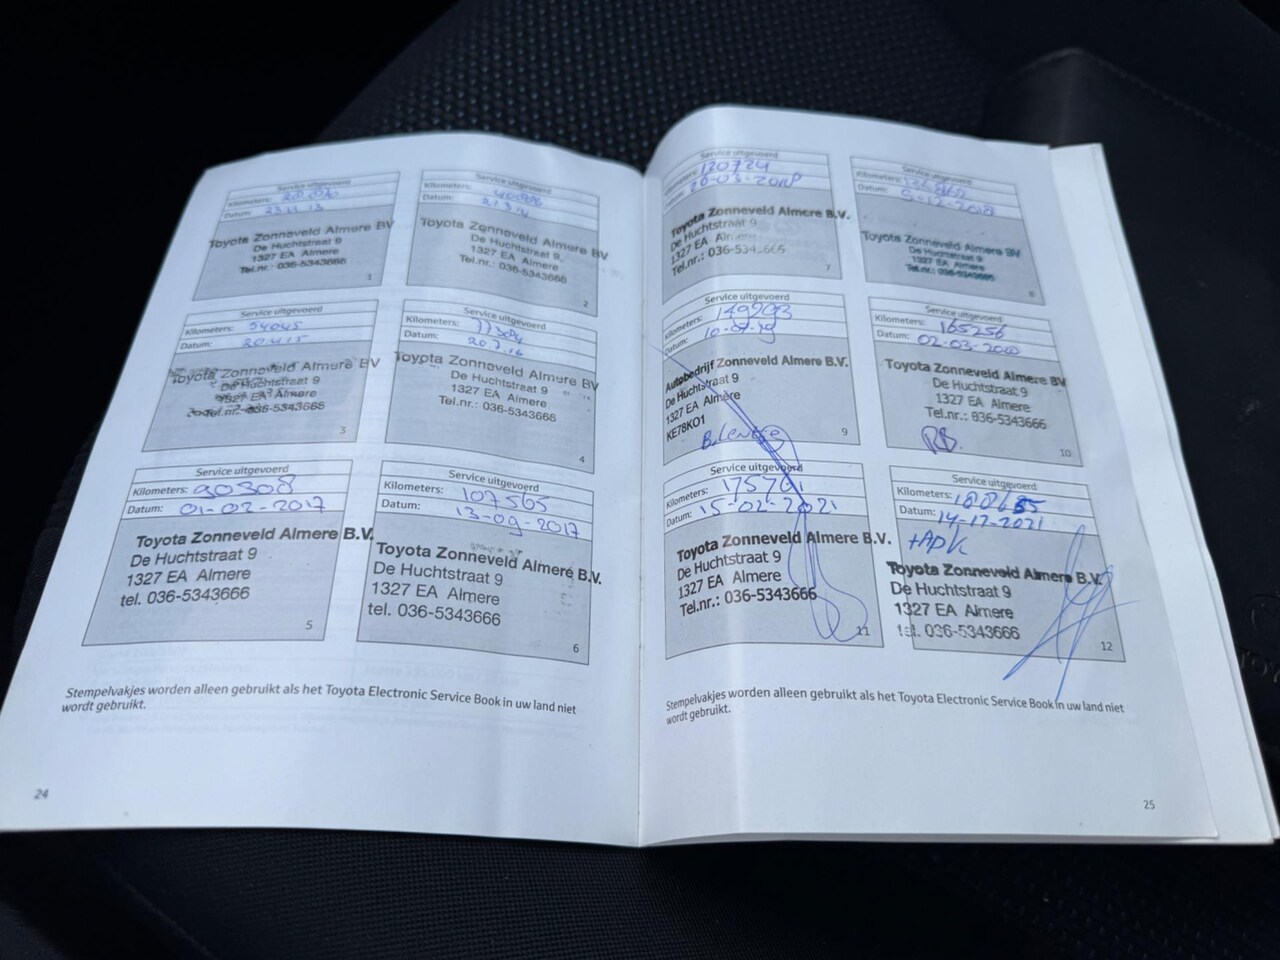 Service uitgevoerd
Kilometers:
Datum: 23.11.13
Toyota Zonneveld Almere BV
De Huchtstraat 9
1327 EA Almere
Tel.nr.: 036-5343666
1
Service uitgevoerd
Kilometers:
Datum:
Toyota Zonneveld Almere BV
De Huchtstraat 9,
1327 EA Almere
Tel.nr.: 036-5343666
2
Service uitgevoerd
Kilometers: 54045
Datum: 20.4.15
Toyota Zonneveld Almere BV
De Huchtstraat 9
1327 EA Almere
Tel.nr.: 036-5343666
3
Service uitgevoerd
Kilometers:
Datum: 20.7.16
Toyota Zonneveld Almere BV
De Huchtstraat 9
1327 EA Almere
Tel.nr.: 036-5343666
4
Service uitgevoerd
Kilometers: 90308
Datum: 01-02-2017
Toyota Zonneveld Almere B.V.
De Huchtstraat 9
1327 EA Almere
tel. 036-5343666
5
Service uitgevoerd
Kilometers: 107565
Datum: 13-09-2017
Toyota Zonneveld Almere B.V.
De Huchtstraat 9
1327 EA Almere
tel. 036-5343666
6
Stempelvakjes worden alleen gebruikt als het Toyota Electronic Service Book in uw land niet
wordt gebruikt.
24
Service uitgevoerd
120724
20-03-2018
Toyota Zonneveld Almere B.V.
De Huchtstraat 9
1327 EA Almere
Tel.nr.: 036-534
7
Service uitgevoerd
Kilometers:
Datum: 5-12-2018
Toyota Zonneveld Almere BV
De Huchtstraat 9
1327 EA Almere
Tel.nr.: 036-5343666
8
Service uitgevoerd
Kilometers: 149203
Datum: 10-07-19
Autobedrijf Zonneveld Almere B.V.
De Huchtstraat 9
1327 EA Almere
KE78KO1
9
Service uitgevoerd
Kilometers: 165256
Datum: 02-03-2020
Toyota Zonneveld Almere BV
De Huchtstraat 9
1327 EA Almere
Tel.nr.: 036-5343666
RB.
10
Service uitgevoerd
Kilometers: 175761
Datum: 15-02-2021
Toyota Zonneveld Almere B.V.
De Huchtstraat 9
1327 EA Almere
Tel.nr.: 036-5343666
11
Service uitgevoerd
Kilometers:
Datum: 14-12-2021
+APK
Toyota Zonneveld Almere B.V.
De Huchtstraat 9
1327 EA Almere
tel. 036-5343666
12
Stempelvakjes worden alleen gebruikt als het Toyota Electronic Service Book in uw land niet
wordt gebruikt.
25